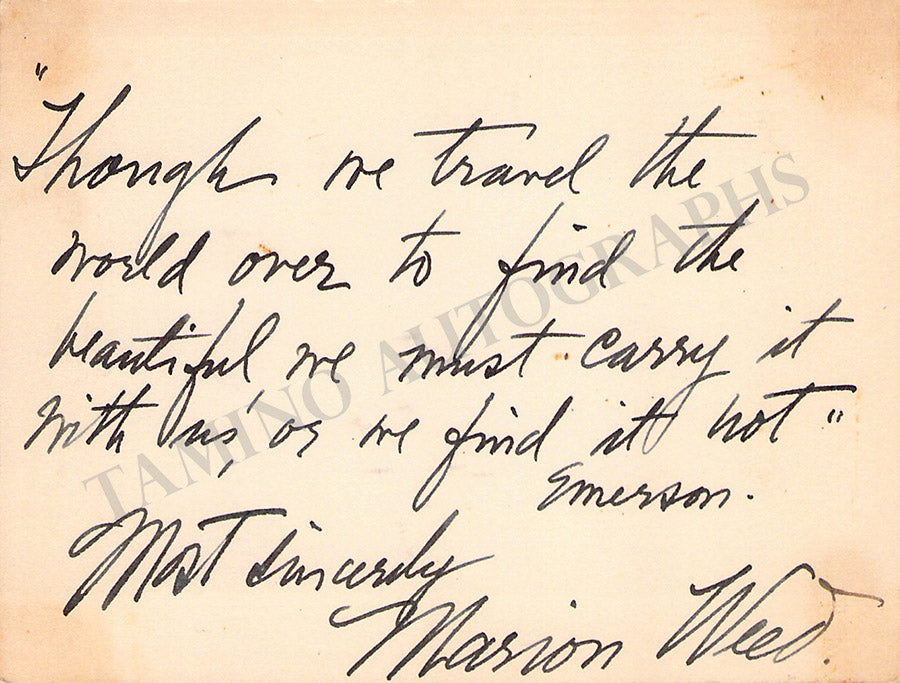 "Though we travel the
world over to find the
beautiful we must carry it
with us, or we find it not"
Emerson.
Most sincerely
Marion Weed.
TAMINO AUTOGRAPHS